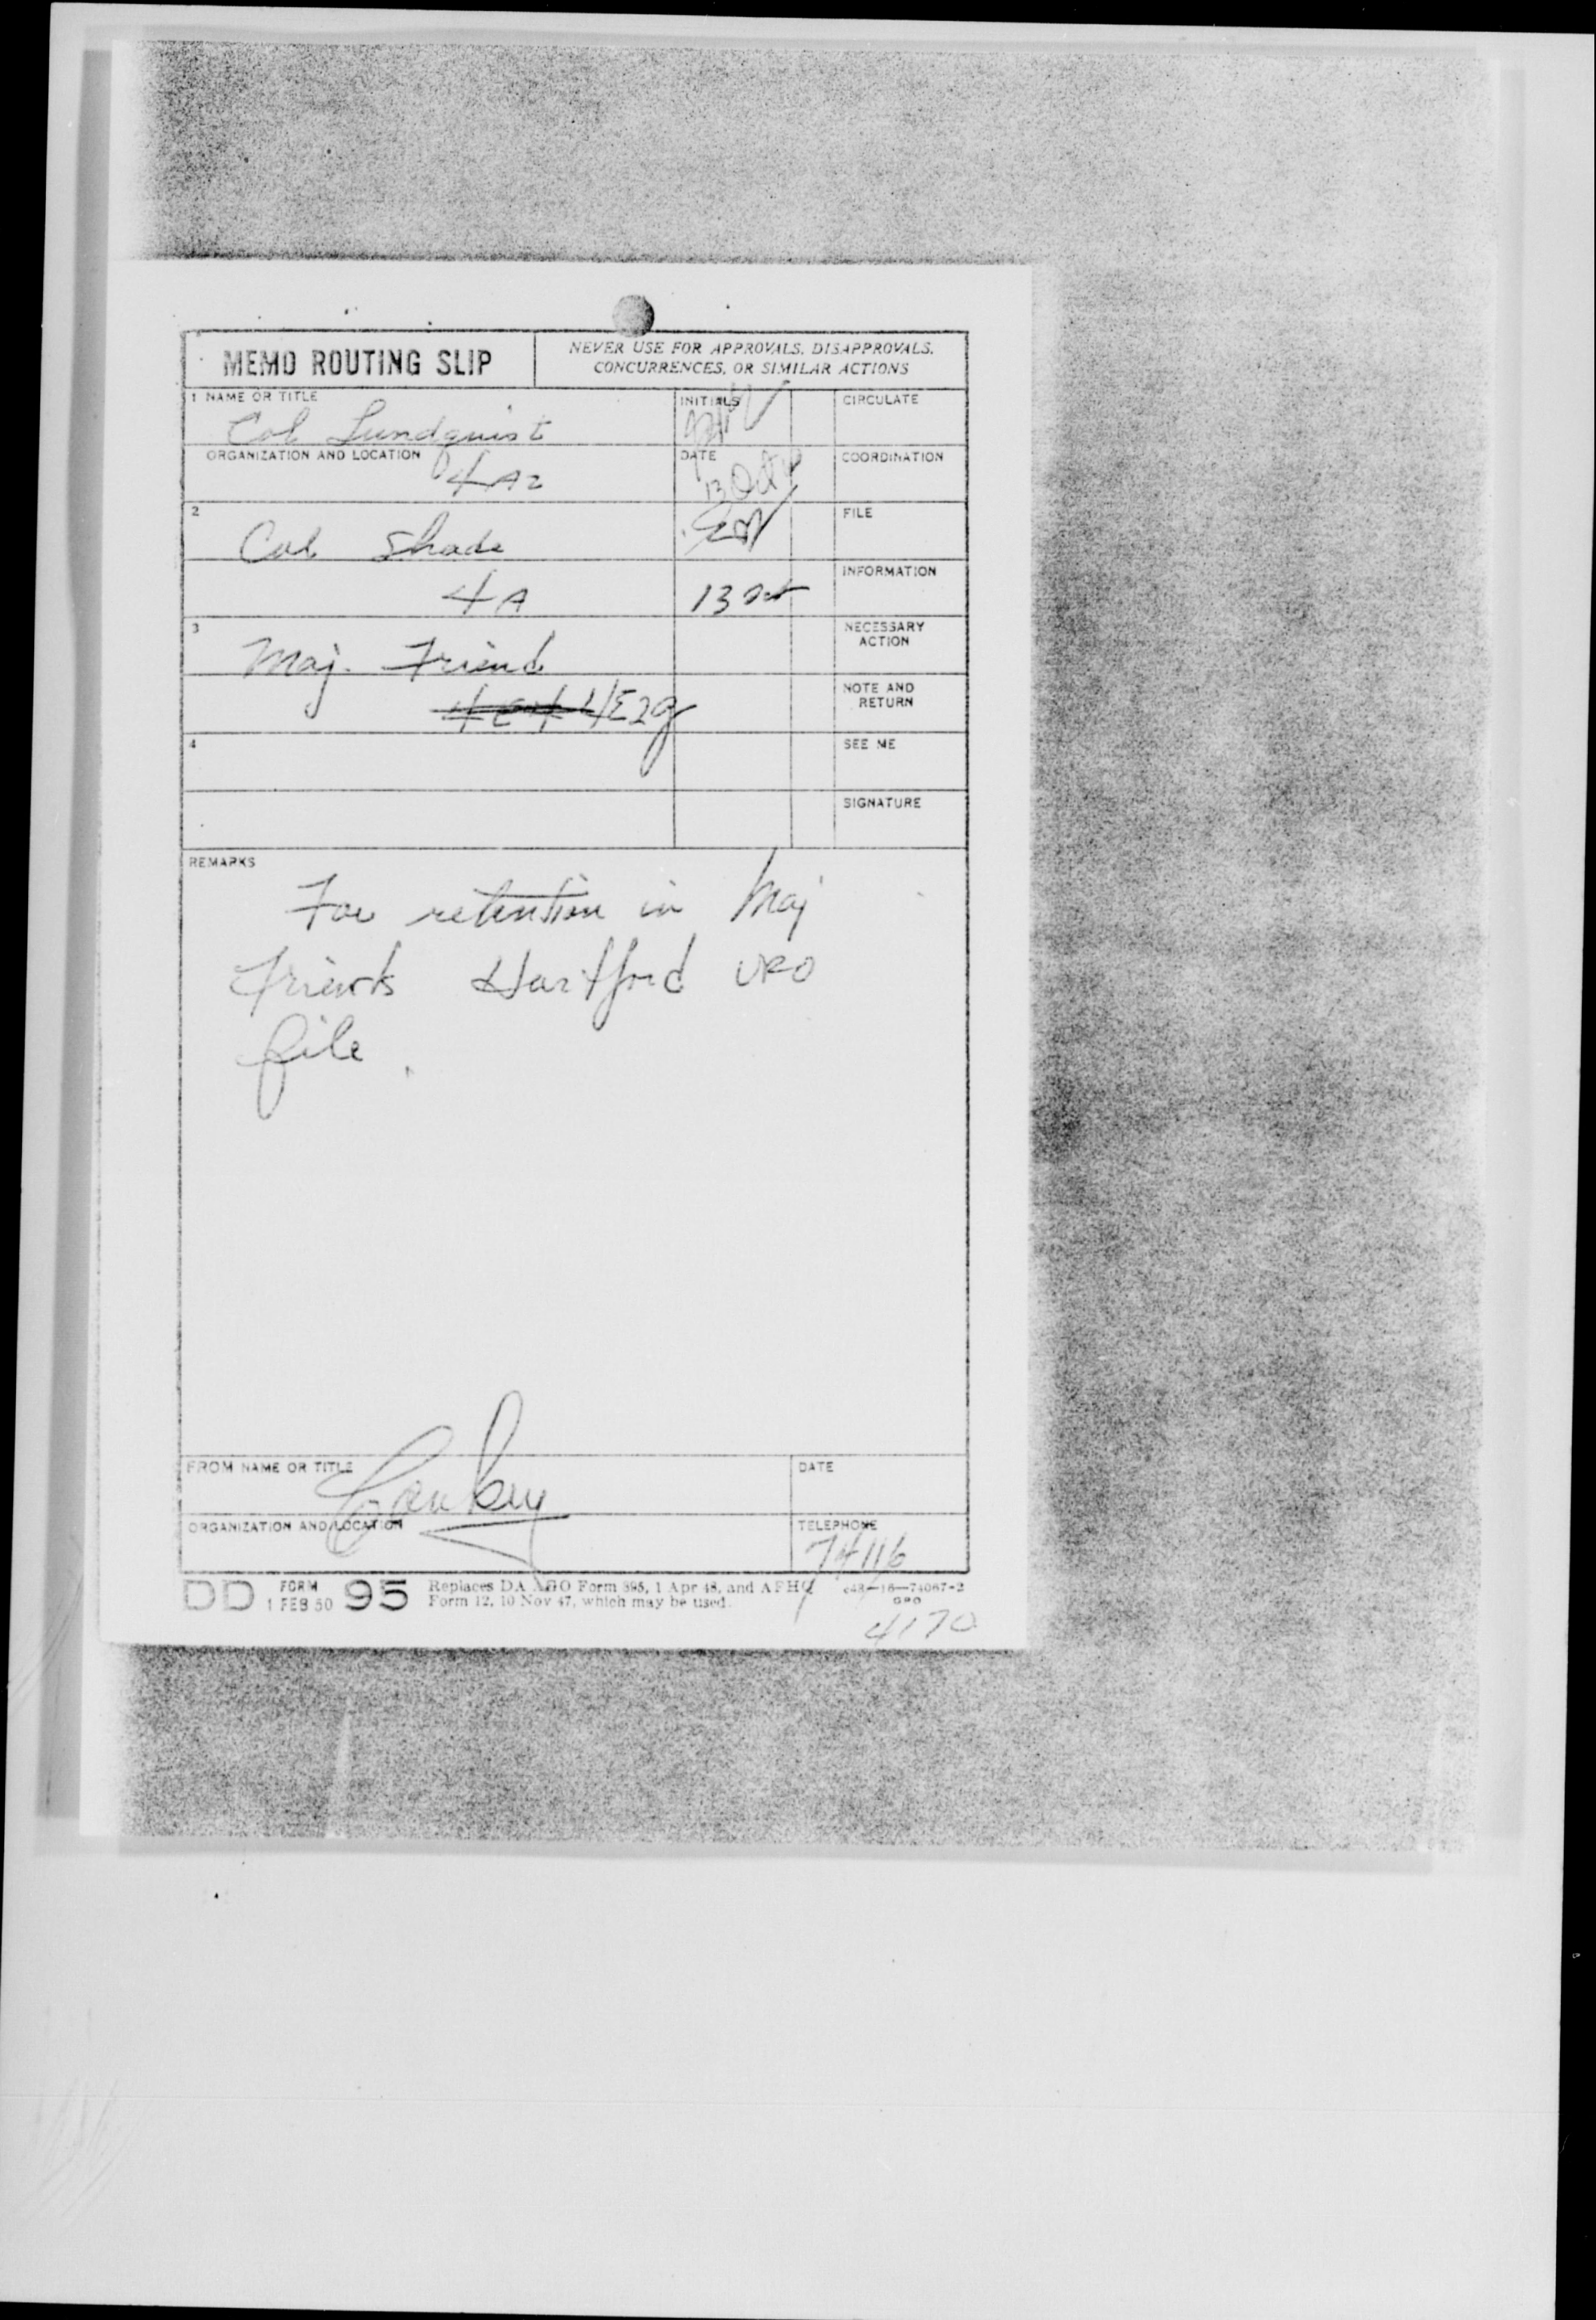 MEMO ROUTING SLIP
NEVER USE FOR APPROVALS, DISAPPROVALS,
CONCURRENCES, OR SIMILAR ACTIONS
1 NAME OR TITLE
Col Lundquist
INITIALS
CIRCULATE
ORGANIZATION AND LOCATION
4A2
DATE
13 Oct
COORDINATION
2
Col Shade
FILE
4A
13 Oct
INFORMATION
3
Maj. Friend
NECESSARY
ACTION
4E2g
NOTE AND
RETURN
4
SEE ME
SIGNATURE
REMARKS
For retention in Maj
Friends Hartford UFO
file.
FROM NAME OR TITLE
DATE
ORGANIZATION AND LOCATION
TELEPHONE
DD FORM 95
1 FEB 50
Replaces DA AGO Form 895, 1 Apr 48, and AFHQ
Form 12, 10 Nov 47, which may be used.
c48—16—74067-2
GPO
4170